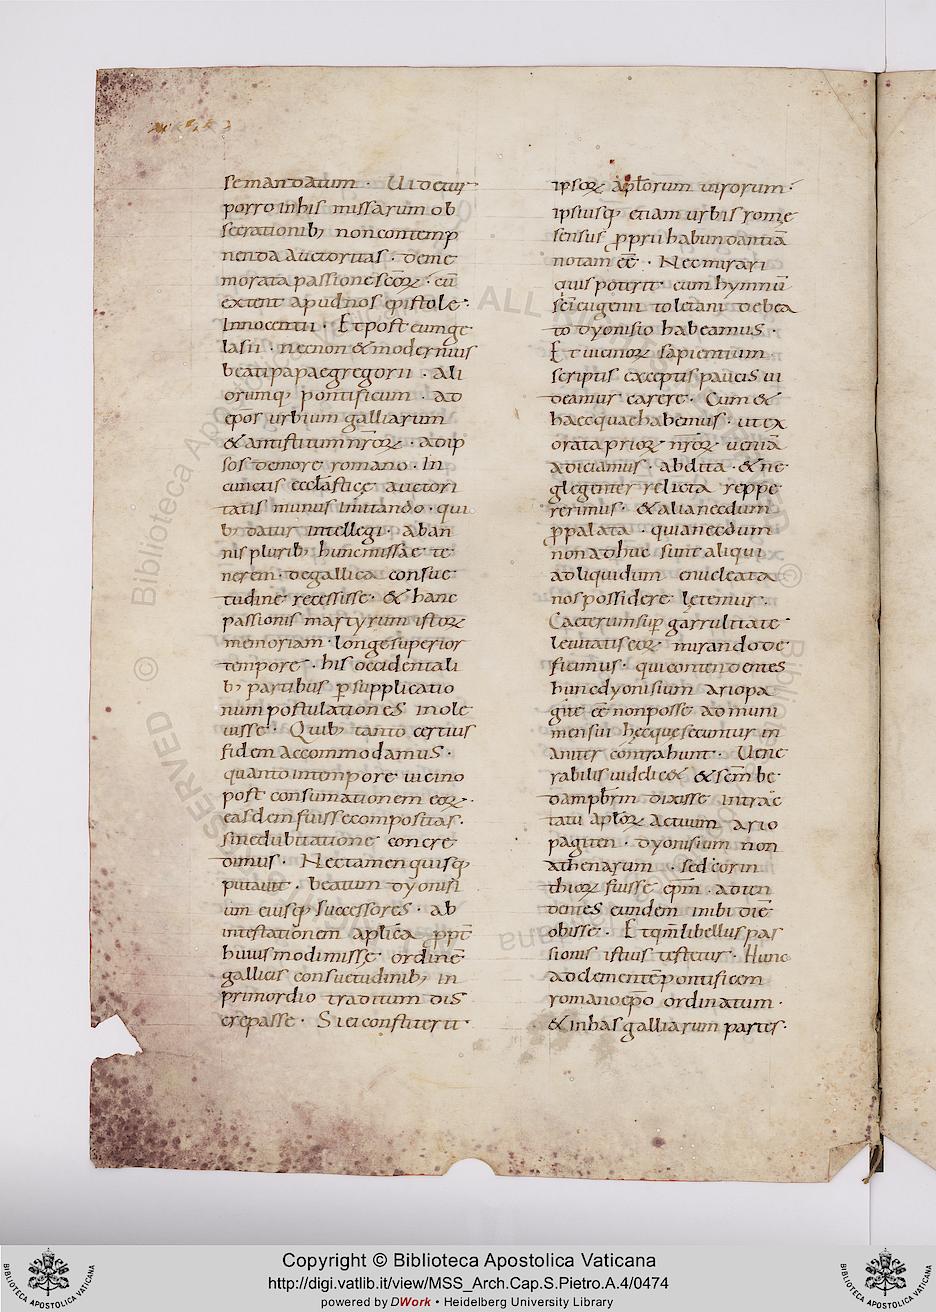 se mandatum · Uidetur
porro in his missarum ob
secrationib; non contemp
nenda auctoritas · de me
morata passione scõꝝ · cũ
extent apud nos epistole ·
Innocentii · Et post eum ge
lasii · necnon & modernius
beati papae gregorii · ali
orumq; pontificum · ad
ep̃os urbium galliarum
& antistitum nr̃oꝝ · ad ip
sos de more romano · In
cunctis eccl̃astice auctori
tatis munus imitando · qui
b; datur intellegi · aban
nis plurib; hunc missae te
nerem · de gallica consue
tudine recessisse · & hanc
passionis martyrum istoꝝ
memoriam · longe superior
tempore · his occidentali
b; partibus p supplicatio
num postulationes inole
uisse · Quib; tanto certius
fidem accommodamus ·
quanto in tempore uicino
post consumationem eoꝝ ·
easdem fuisse compositas ·
sine dubitatione con cre
dimus · Nec tamen quisq;
putauit · beatum dyonisi
um eiusq; successores · ab
intestationem aplic̃a ꝓpt̃
huiusmodi misse · ordinẽ ·
gallicis consuetudinib; in
primordio traditum dis
crepasse · Si ei constiterit ·
ipsoꝝ apl̃orum uirorum ·
ipsiusq; etiam urbis rome
sensus ꝓprii habundantiã
notam eẽ · Nec mirari
cuis poterit · cum hymnũ
sc̃i eugenii toletani de bea
to dyonisio habeamus ·
Et uicinoꝝ sapientium
scriptis exceptis paucis ui
deamur carere · Cum &
haec quae habemus · ut ex
orata prioꝝ nr̃oꝝ ueniã
adiciamus · abdita · & ne
glegenter relicta reppe
rerimus · & alia necdum
ꝓpalata · quia necdum
non adhuc sunt aliqui
ad liquidum enucleata
nos possidere letemur ·
Caeterum sup garrulitate
leuitatis eoꝝ mirando de
ficimus · qui contendentes
hunc dyonisium ariopa
gite eẽ non posse admuni
mensui hecque secuntur in
aniter contrahunt · Uene
rabilis uidelic& & sem be
dam pbr̃m dixisse in trac
tatu apl̃oꝝ actuum ario
pagiten · dyonisium non
athenarum · sed corin
thioꝝ fuisse ep̃m · adici
entes eundem inibi diẽ
obisse · Et qm̃ libellus pas
sionis istius testetur · Hunc
ad clementẽ pontificem
romano ep̃o ordinatum ·
& in has galliarum partes ·
ALL
SERVED
© Biblioteca Aposto
Copyright © Biblioteca Apostolica Vaticana
http://digi.vatlib.it/view/MSS_Arch.Cap.S.Pietro.A.4/0474
powered by DWork • Heidelberg University Library
BIBLIOTECA APOSTOLICA VATICANA
BIBLIOTECA APOSTOLICA VATICANA